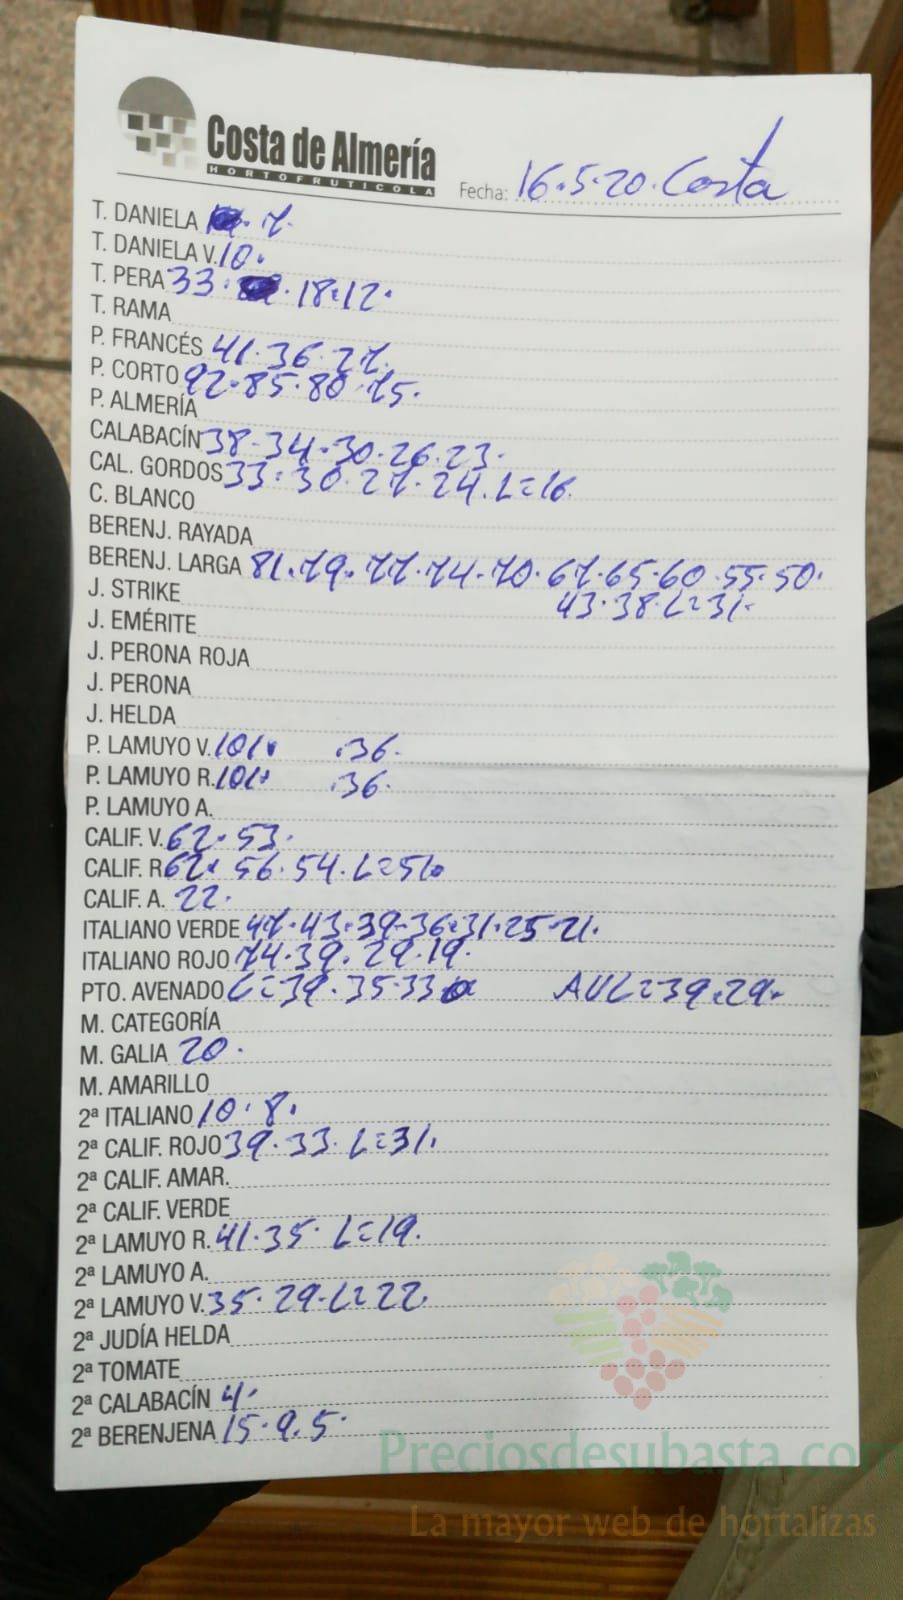 Costa de Almería
HORTOFRUTICOLA
Fecha: 16.5.20. Costa
T. DANIELA 7.
T. DANIELA V. 10.
T. PERA 33. 18.12.
T. RAMA
P. FRANCÉS 41.36.27.
P. CORTO 92.85.80.75.
P. ALMERÍA
CALABACÍN 38.34.30.26.23.
CAL. GORDOS 33.30.27.24.L=16.
C. BLANCO
BERENJ. RAYADA
BERENJ. LARGA 81.79.77.74.70.67.65.60.55.50.
J. STRIKE 43.38.L=31.
J. EMÉRITE
J. PERONA ROJA
J. PERONA
J. HELDA
P. LAMUYO V. 101. .36.
P. LAMUYO R. 101. .36.
P. LAMUYO A.
CALIF. V. 62.53.
CALIF. R 62.56.54.L=51.
CALIF. A. 22.
ITALIANO VERDE 47.43.39.36.31.25.21.
ITALIANO ROJO 74.39.29.19.
PTO. AVENADO L=39.35.33 AVL=39.29.
M. CATEGORÍA
M. GALIA 20.
M. AMARILLO
2ª ITALIANO 10.8.
2ª CALIF. ROJO 39.33.L=31.
2ª CALIF. AMAR.
2ª CALIF. VERDE
2ª LAMUYO R. 41.35.L=19.
2ª LAMUYO A.
2ª LAMUYO V. 35.29.L=22.
2ª JUDÍA HELDA
2ª TOMATE
2ª CALABACÍN 4.
2ª BERENJENA 15.9.5.
Preciosdesubasta.com
La mayor web de hortalizas